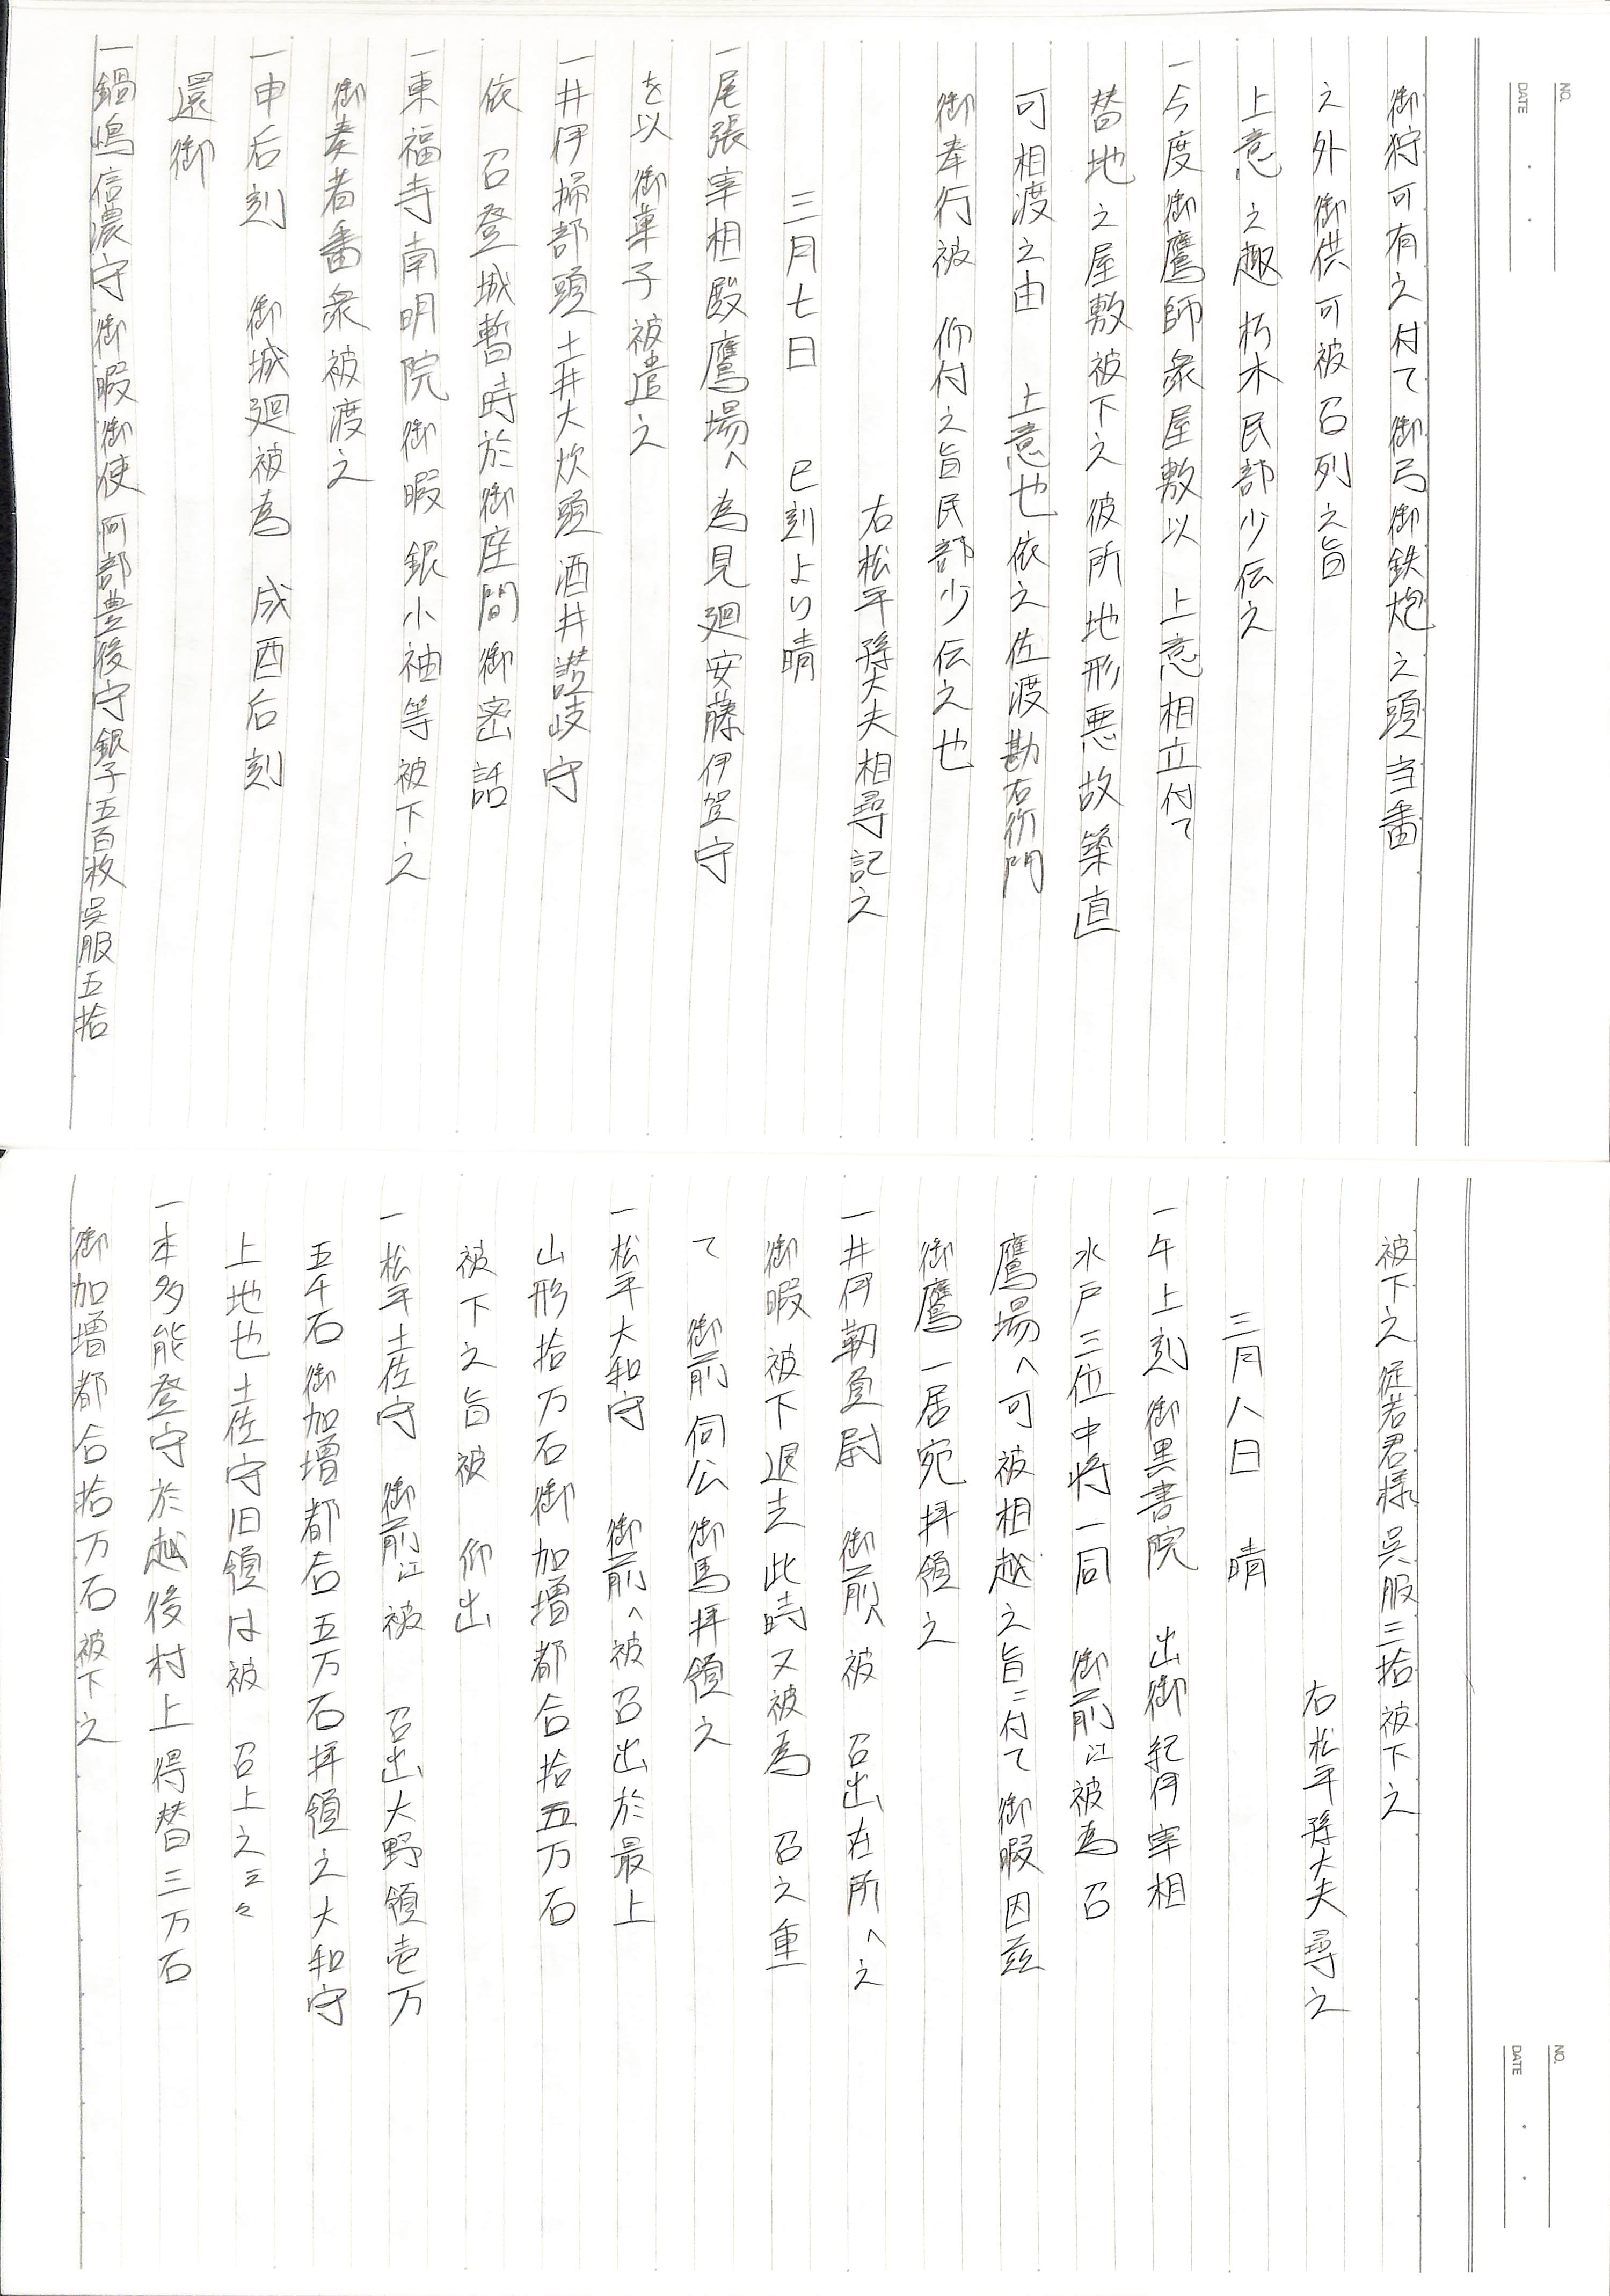 NO.
DATE
御狩可有之付て御弓御鉄炮之頭当番
之外御供可被召列之旨
上意之趣朽木民部少伝之
一今度御鷹師衆屋敷以　上意相立付て
替地之屋敷被下之彼所地形悪故築直
可相渡之由　上意也依之佐渡勘右衛門
御奉行被　仰付之旨民部少伝之也
右松平孫大夫相尋記之
三月七日　巳刻より晴
一尾張宰相殿鷹場へ為見廻安藤伊賀守
を以御菓子被遣之
一井伊掃部頭土井大炊頭酒井讃岐守
依　召登城暫時於御座間御密話
一東福寺南明院御暇銀小袖等被下之
御奏者番衆被渡之
一申后刻　御城廻被為　成酉后刻
還御
一鍋嶋信濃守御暇御使阿部豊後守銀子五百枚呉服五拾
NO.
DATE
被下之従若君様呉服三拾被下之
右松平孫大夫尋之
三月八日　晴
一午上刻御黒書院　出御紀伊宰相
水戸三位中将一同　御前江被為召
鷹場へ可被相越之旨ニ付て御暇因茲
御鷹一居宛拝領之
一井伊靱負尉　御前へ被　召出在所へ之
御暇被下退去此時又被為　召之重
て　御前伺公御馬拝領之
一松平大和守　御前へ被召出於最上
山形拾万石御加増都合拾五万石
被下之旨被　仰出
一松平土佐守　御前江被　召出大野領壱万
五千石御加増都合五万石拝領之大和守
上地也土佐守旧領は被　召上之云々
一本多能登守於越後村上得替三万石
御加増都合拾万石被下之